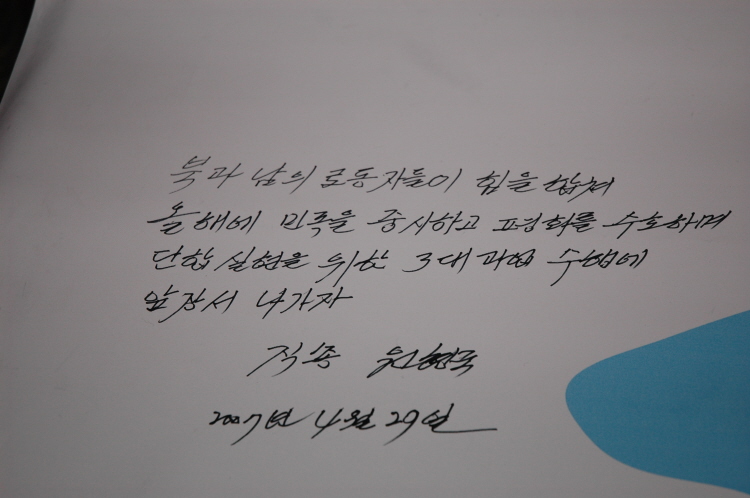 북과 남의 로동자들이 힘을 합쳐
올해에 민족을 중시하고 평화를 수호하며
단합 실현을 위한 3대 과업 수행에
앞장서 나가자
직총 원형국
2007년 4월 29일